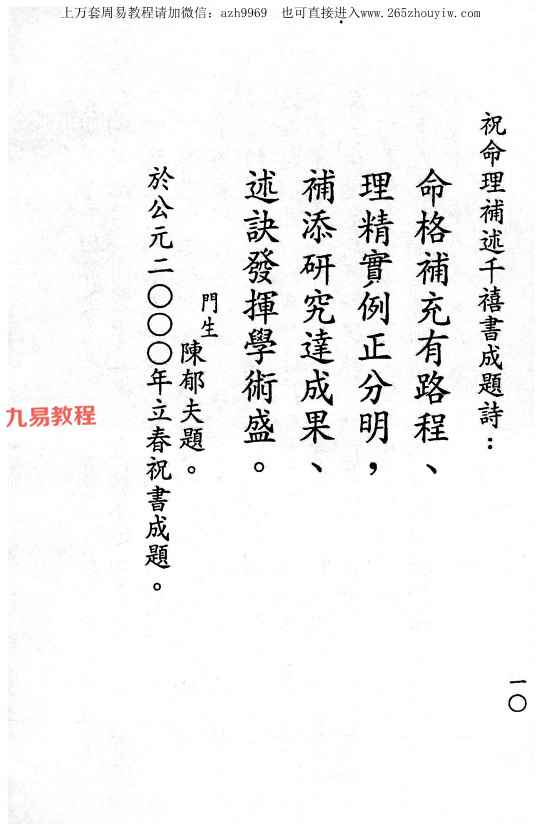 上万套周易教程请加微信：azh9969 也可直接进入www.265zhouyiw.com
祝命理補述千禧書成題詩：
命格補充有路程、
理精實例正分明，
補添研究達成果、
述訣發揮學術盛。
門生陳郁夫題。
於公元二〇〇〇年立春祝書成題。
九易教程
一〇